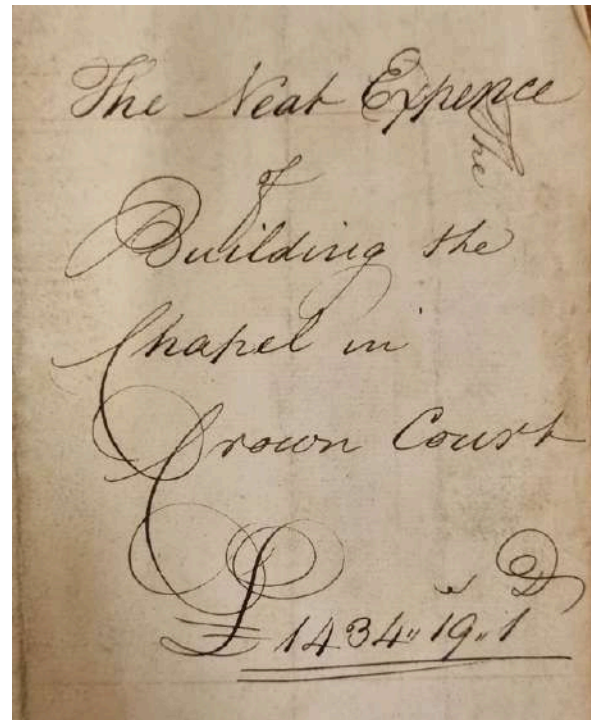 The Neat Expence
The
of
Building the
Chapel in
Crown Court
D
£ 1434,, 19,, 1